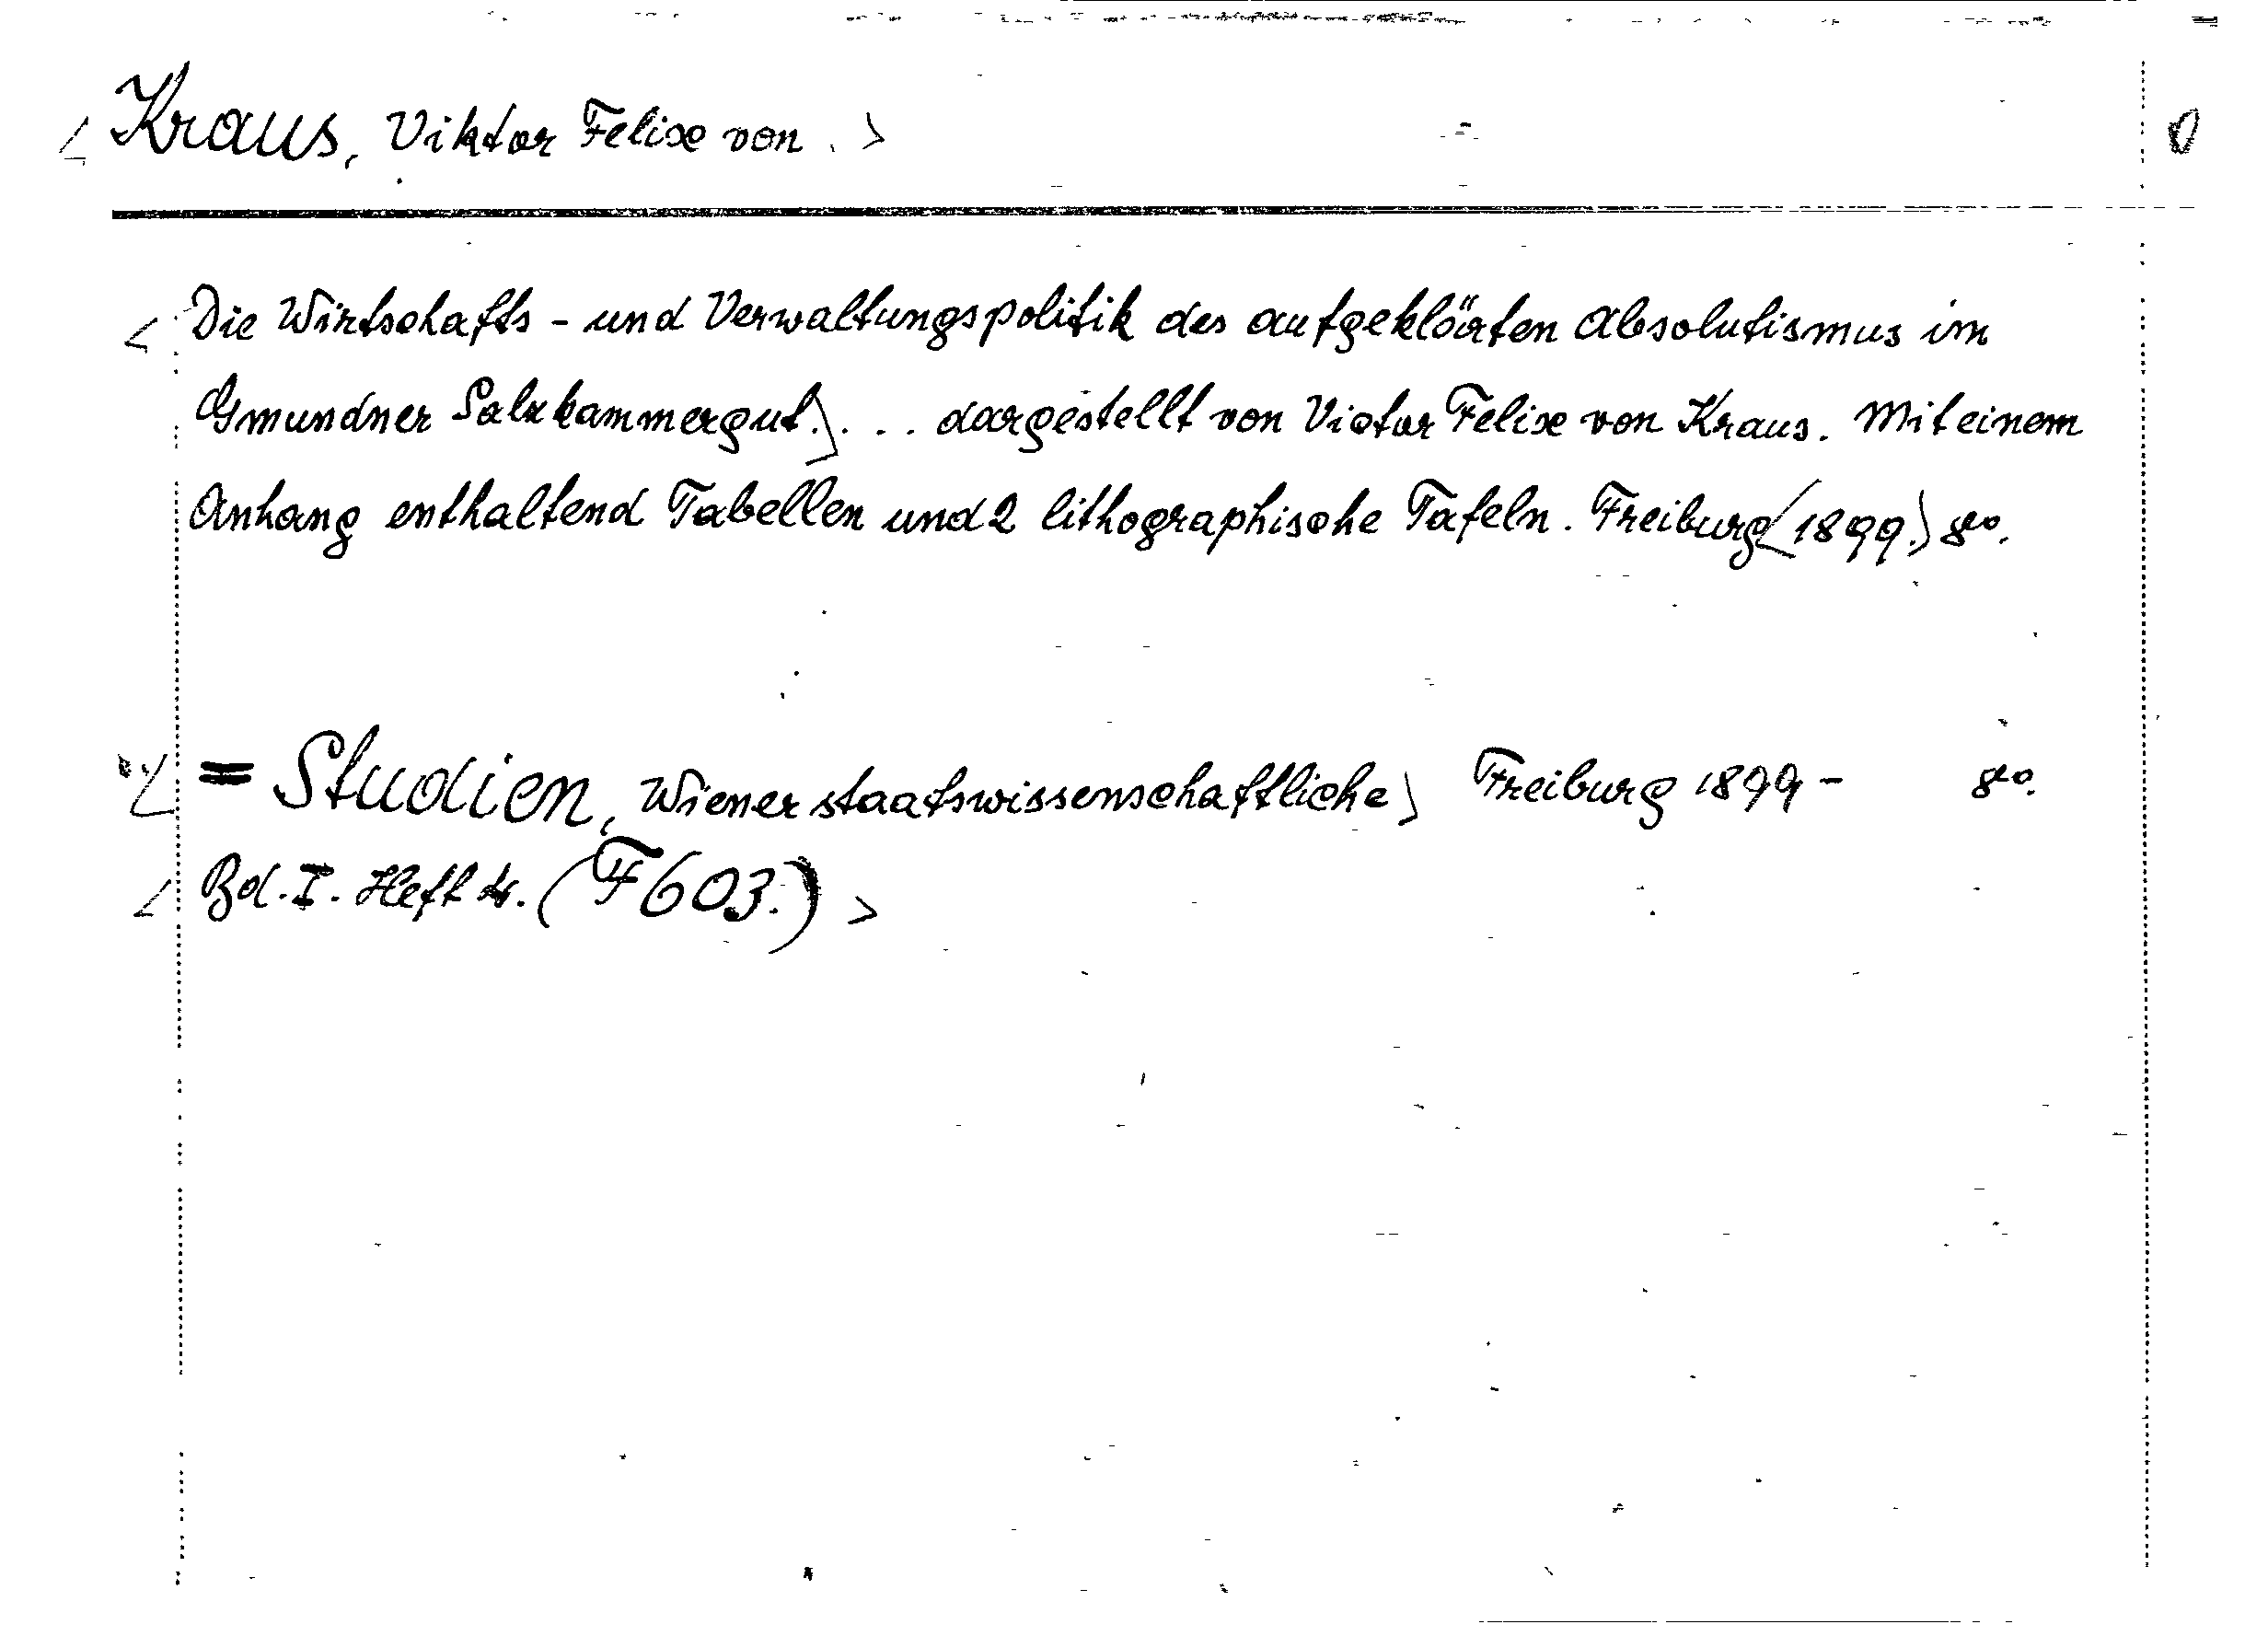 <Kraus, Viktor Felix von.> 0
<Die Wirtschafts- und Verwaltungspolitik des aufgeklärten Absolutismus im
Gmundner Salzkammergut.> ... dargestellt von Victor Felix von Kraus. Mit einem
Anhang enthaltend Tabellen und 2 lithographische Tafeln. Freiburg <1899.> 8°.
<= Studien, Wiener staatswissenschaftliche> Freiburg 1899 - 8°.
<Bd. I. Heft 4. (F 603.)>